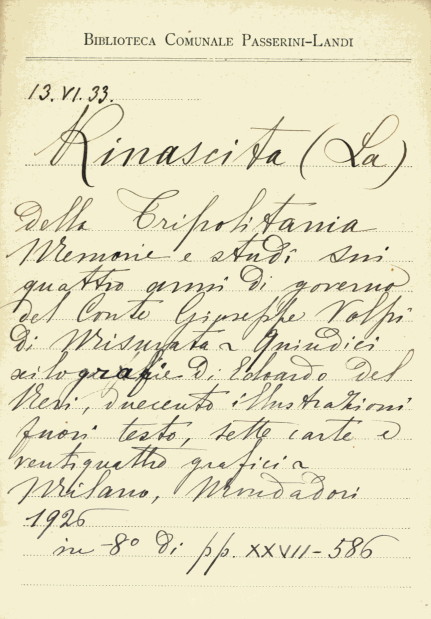 BIBLIOTECA COMUNALE PASSERINI-LANDI
13.VI.33.
Rinascita (La)
della Tripolitania
Memorie e studi sui
quattro anni di governo
del Conte Giuseppe Volpi
di Misurata ~ Quindici
xilografie di Edoardo del
Neri, duecento illustrazioni
fuori testo, sette carte e
ventiquattro grafici ~
Milano, Mondadori
1926
in -8° di pp. XXVII-586